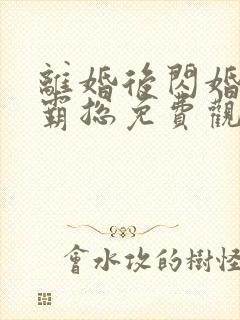 離婚後閃婚
霸總免費觀
會水攻的樹怪